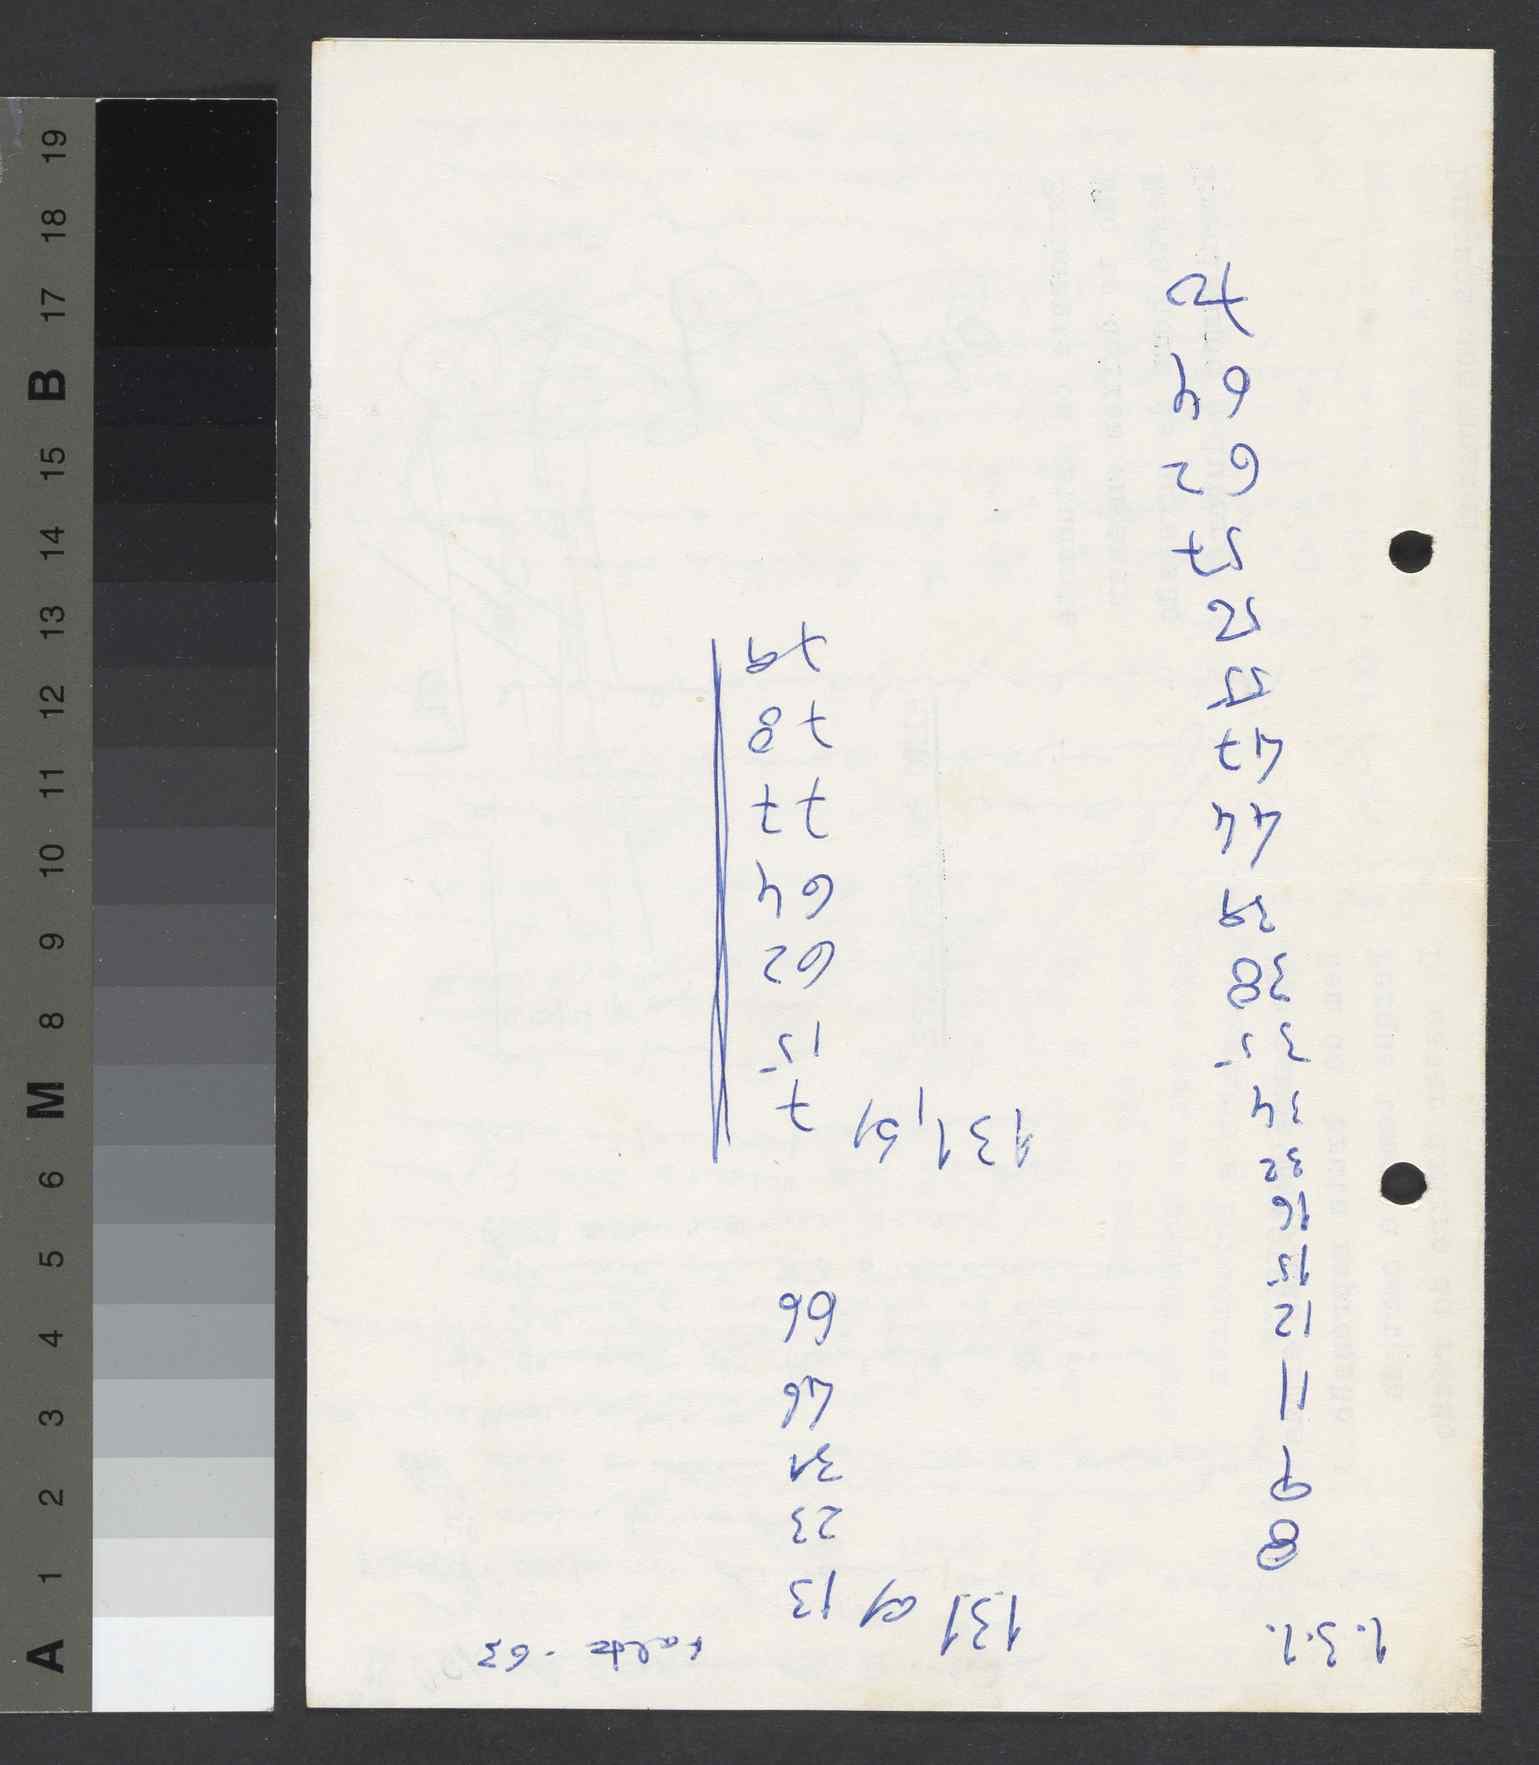 1.3.1.
8
9
11
12
15
16
32
34
35
38
39
44
47
55
57
62
64
72
131 a) 13
23
31
46
66
131, b) 7
15
62
64
77
78
79
-63
A 1 2 3 4 5 6 M 8 9 10 11 12 13 14 15 B 17 18 19